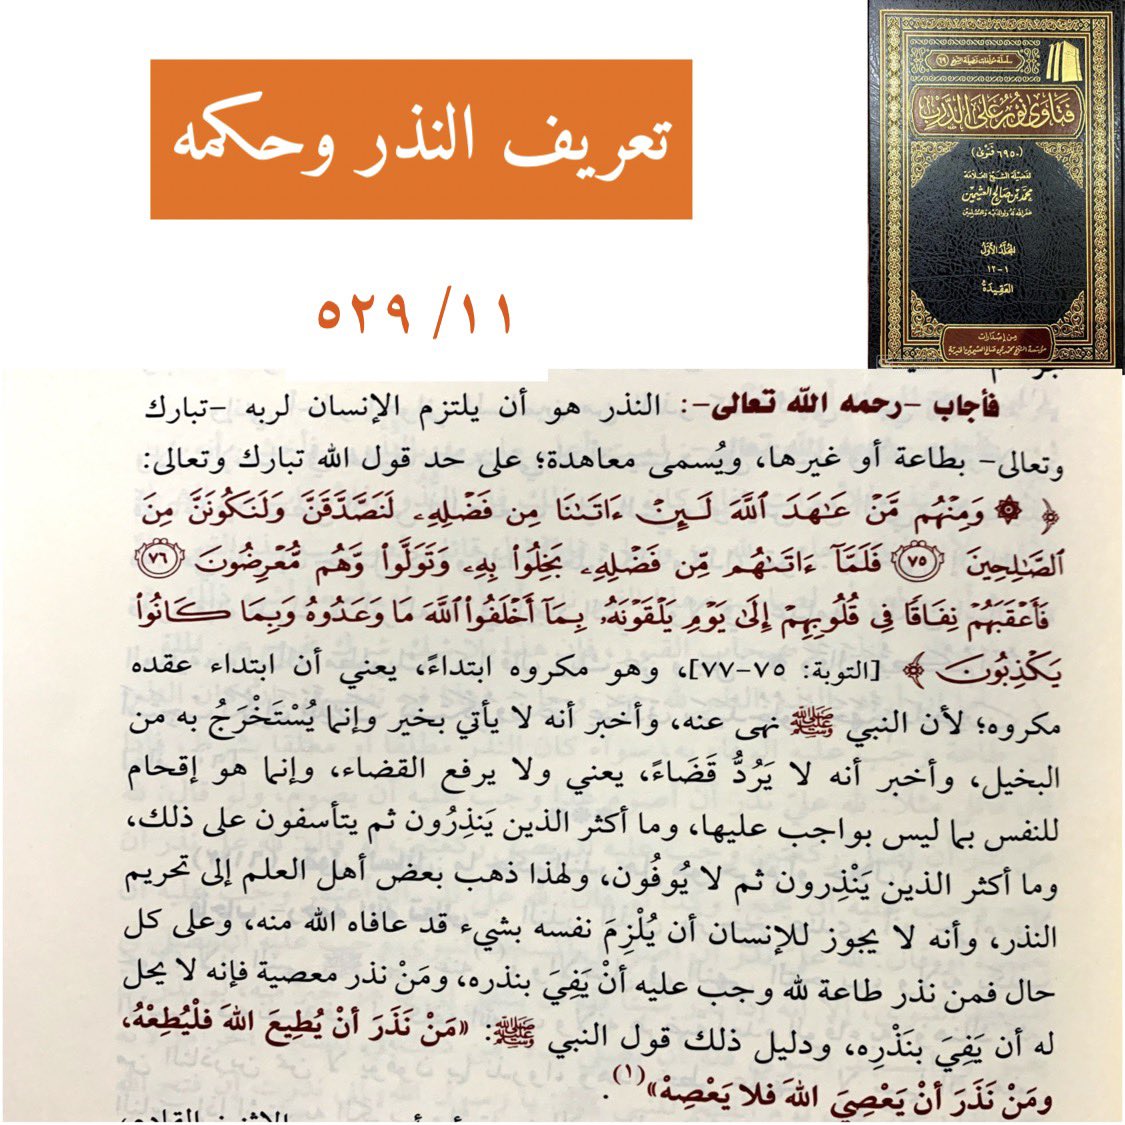 تعريف النذر وحكمه
١١/ ٥٢٩
سلسلة مؤلفات فضيلة الشيخ (٦٩)
فتاوى نور على الدرب
(٦٩٥٠ فتوى)
لفضيلة الشيخ العلامة
محمد بن صالح العثيمين
غفر الله له ولوالديه وللمسلمين
المجلد الأول
١-١٢
العقيدة
من إصدارات
مؤسسة الشيخ محمد بن صالح العثيمين الخيرية
فأجاب -رحمه الله تعالى-: النذر هو أن يلتزم الإنسان لربه -تبارك
وتعالى- بطاعة أو غيرها، ويُسمى معاهدة؛ على حد قول الله تبارك وتعالى:
﴿ ۞ وَمِنۡهُم مَّنۡ عَٰهَدَ ٱللَّهَ لَئِنۡ ءَاتَىٰنَا مِن فَضۡلِهِۦ لَنَصَّدَّقَنَّ وَلَنَكُونَنَّ مِنَ
ٱلصَّٰلِحِينَ ٧٥ فَلَمَّآ ءَاتَىٰهُم مِّن فَضۡلِهِۦ بَخِلُواْ بِهِۦ وَتَوَلَّواْ وَّهُم مُّعۡرِضُونَ ٧٦
فَأَعۡقَبَهُمۡ نِفَاقٗا فِي قُلُوبِهِمۡ إِلَىٰ يَوۡمِ يَلۡقَوۡنَهُۥ بِمَآ أَخۡلَفُواْ ٱللَّهَ مَا وَعَدُوهُ وَبِمَا كَانُواْ
يَكۡذِبُونَ ﴾ [التوبة: ٧٥-٧٧]، وهو مكروه ابتداءً، يعني أن ابتداء عقده
مكروه؛ لأن النبي ﷺ نهى عنه، وأخبر أنه لا يأتي بخير وإنما يُسْتَخْرَجُ به من
البخيل، وأخبر أنه لا يَرُدُّ قَضَاءً، يعني ولا يرفع القضاء، وإنما هو إقحام
للنفس بما ليس بواجب عليها، وما أكثر الذين يَنذِرُون ثم يتأسفون على ذلك،
وما أكثر الذين يَنْذِرون ثم لا يُوفُون، ولهذا ذهب بعض أهل العلم إلى تحريم
النذر، وأنه لا يجوز للإنسان أن يُلْزِمَ نفسه بشيء قد عافاه الله منه، وعلى كل
حال فمن نذر طاعة لله وجب عليه أنْ يَفِيَ بنذره، ومَنْ نذر معصية فإنه لا يحل
له أن يَفِيَ بنَذْرِه، ودليل ذلك قول النبي ﷺ: «مَنْ نَذَرَ أنْ يُطِيعَ اللهَ فلْيُطِعْهُ،
ومَنْ نَذَرَ أنْ يَعْصِيَ اللهَ فلا يَعْصِهْ»(١).